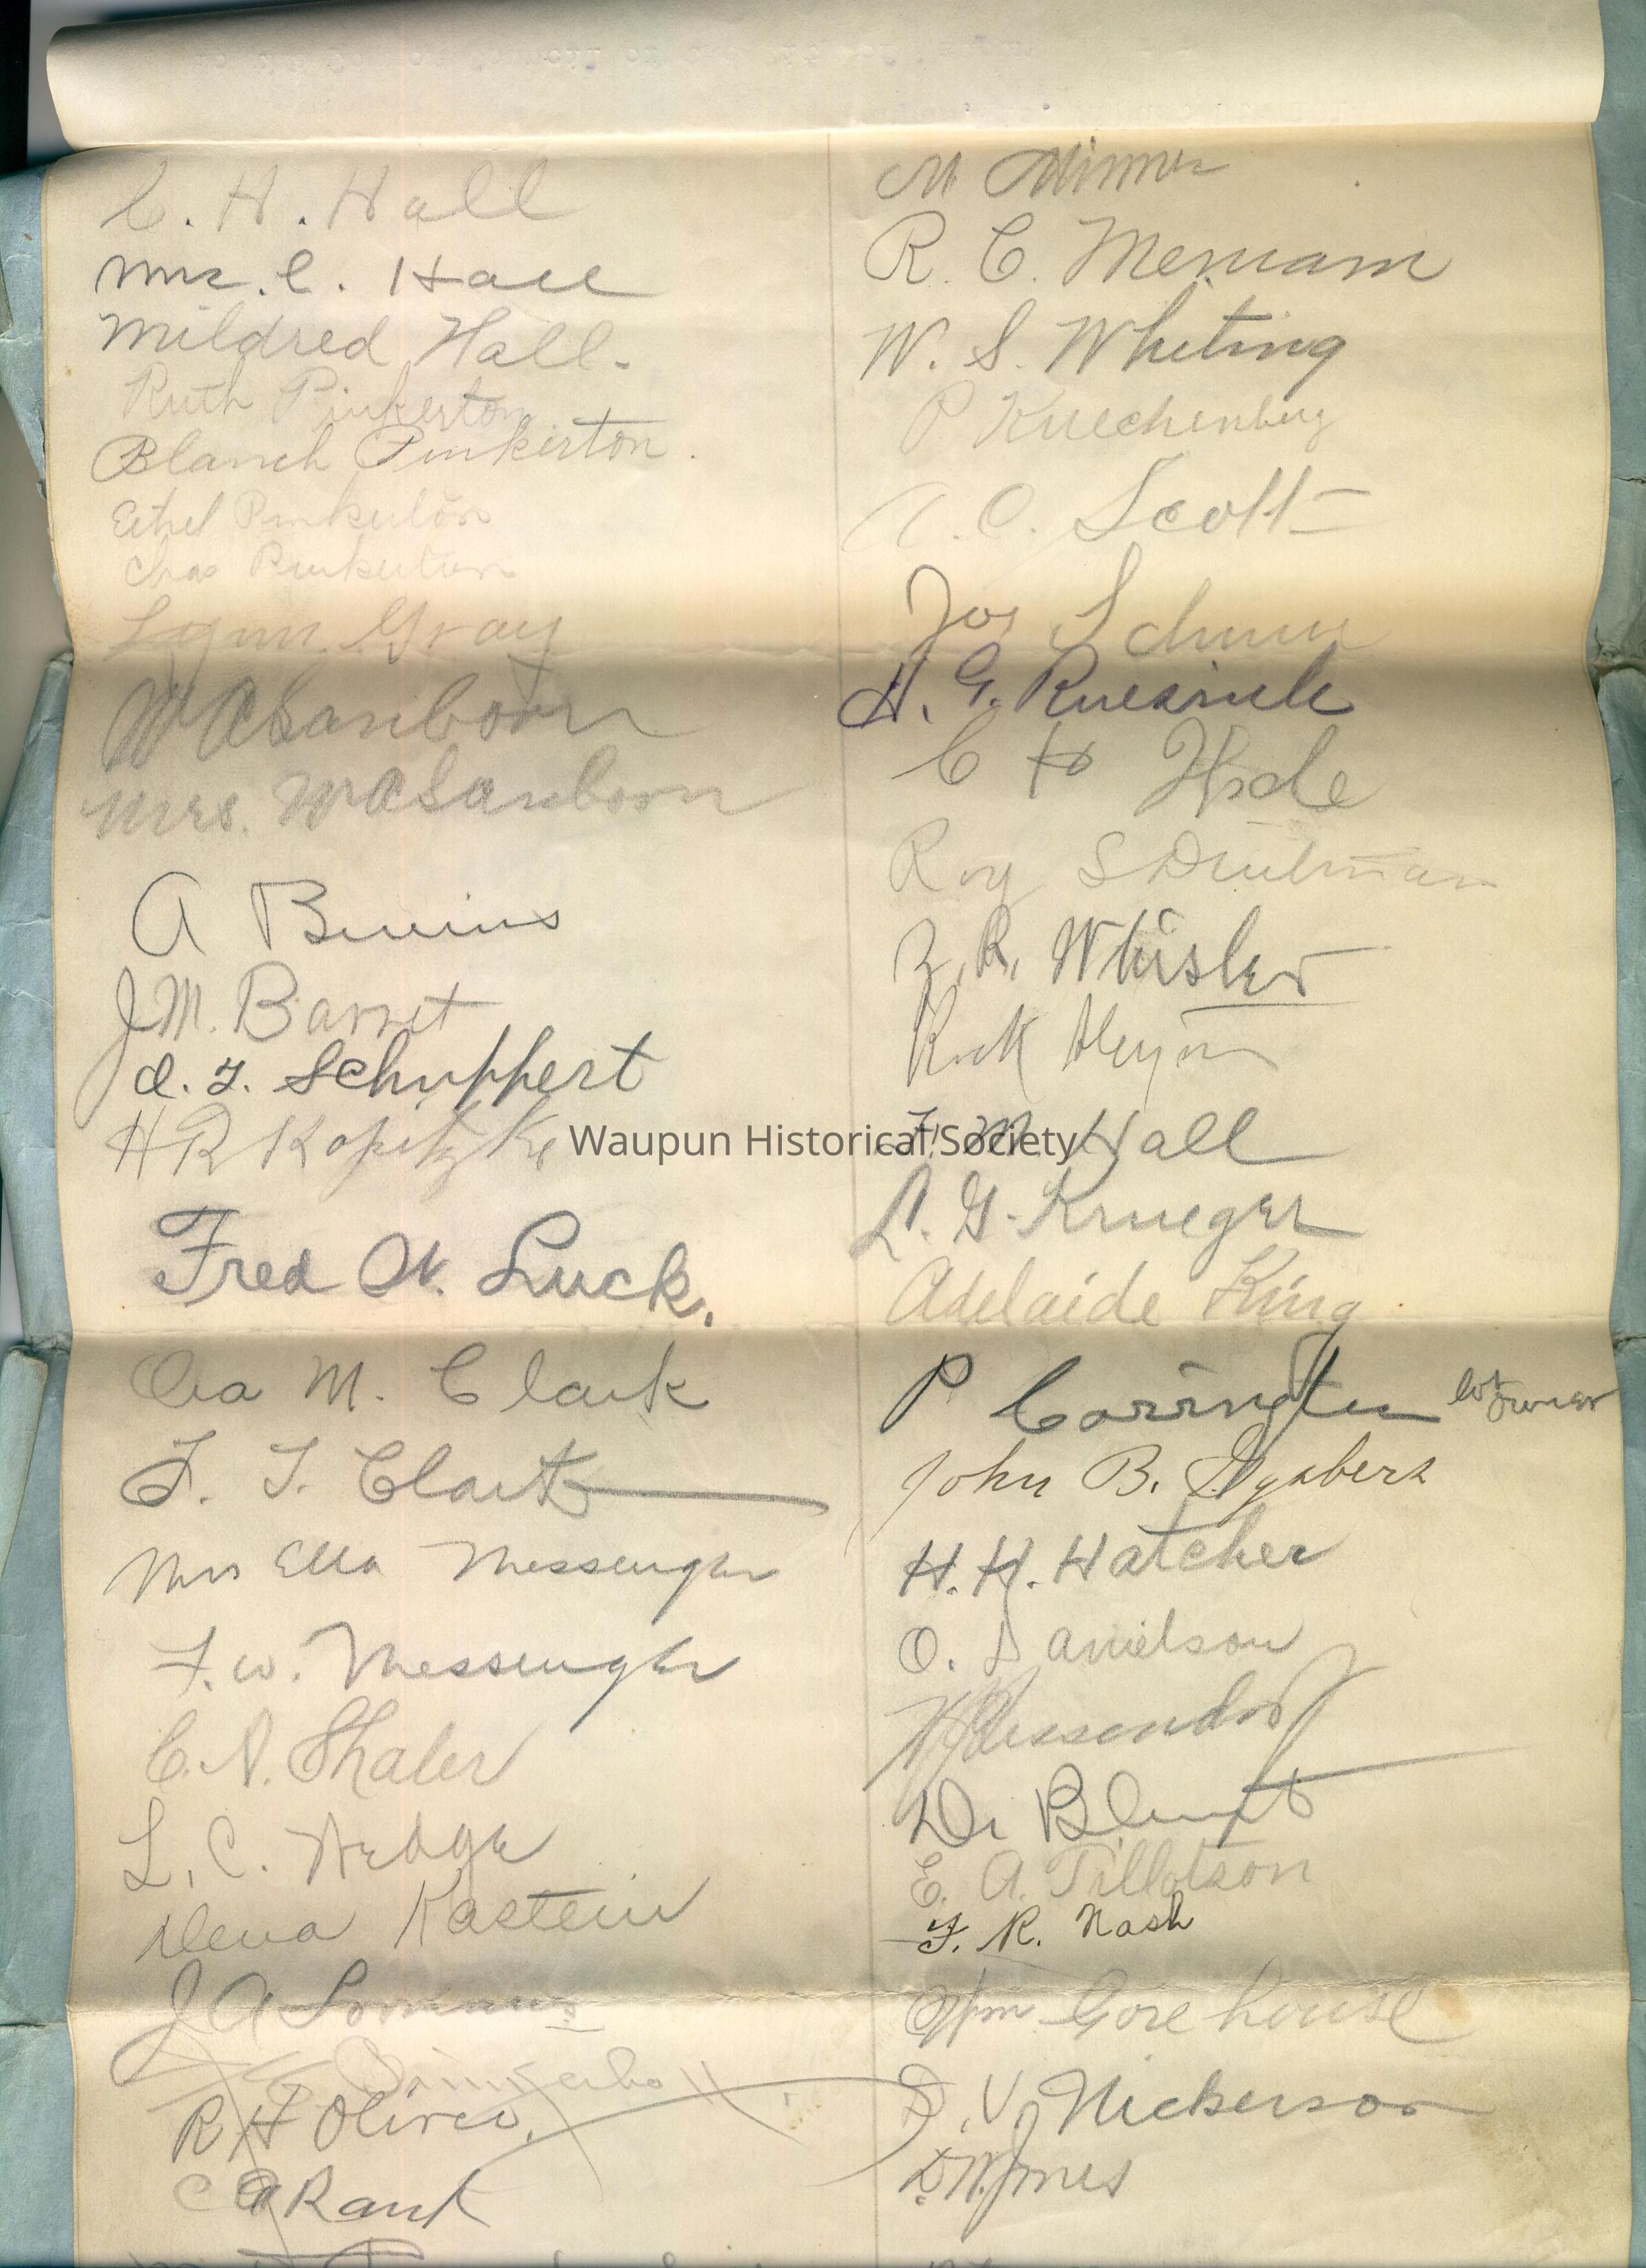 C. H. Hall
Mrs. C. Hall
Mildred Hall.
Ruth Pinkerton
Blanch Pinkerton.
Ethel Pinkerton
Chas Pinkerton
Lynn Gray
W A Sanborn
Mrs. W A Sanborn
A
J. M. Barret
J. Schuppert
H R Kopitzke
Fred W. Luck.
Ora M. Clark
F. T. Clark
Mrs Ella Messenger
F. W. Messenger
C. N. Shaler
L. C. Hedge
Dena Kastein
J A
R F Oliver.
C A Rank
M
R. C. Merriam
W. S. Whiting
P Kuechenberg
A. C. Scott
Jos
H. G.
C H Hyde
Roy S
R. Whisler
M. Hall
A. G. Krueger
Adelaide King
P Corrington
John B. Gysbers
H. H. Hatcher
O. Danielson
Dr Blunt
E. A. Tillotson
F. R. Nash
Wm Gorehouse
D. V. Nickerson
D. W. Jones
Waupun Historical Society